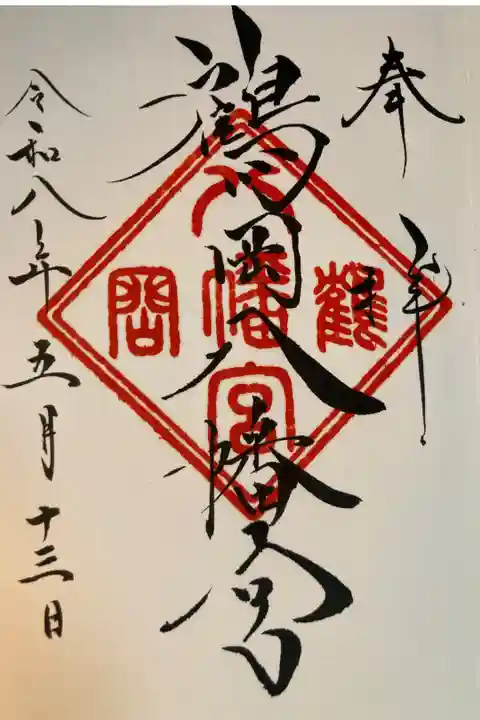 奉拝
鶴岡八幡宮
鶴
八幡宮
岡
令和八年五月十三日